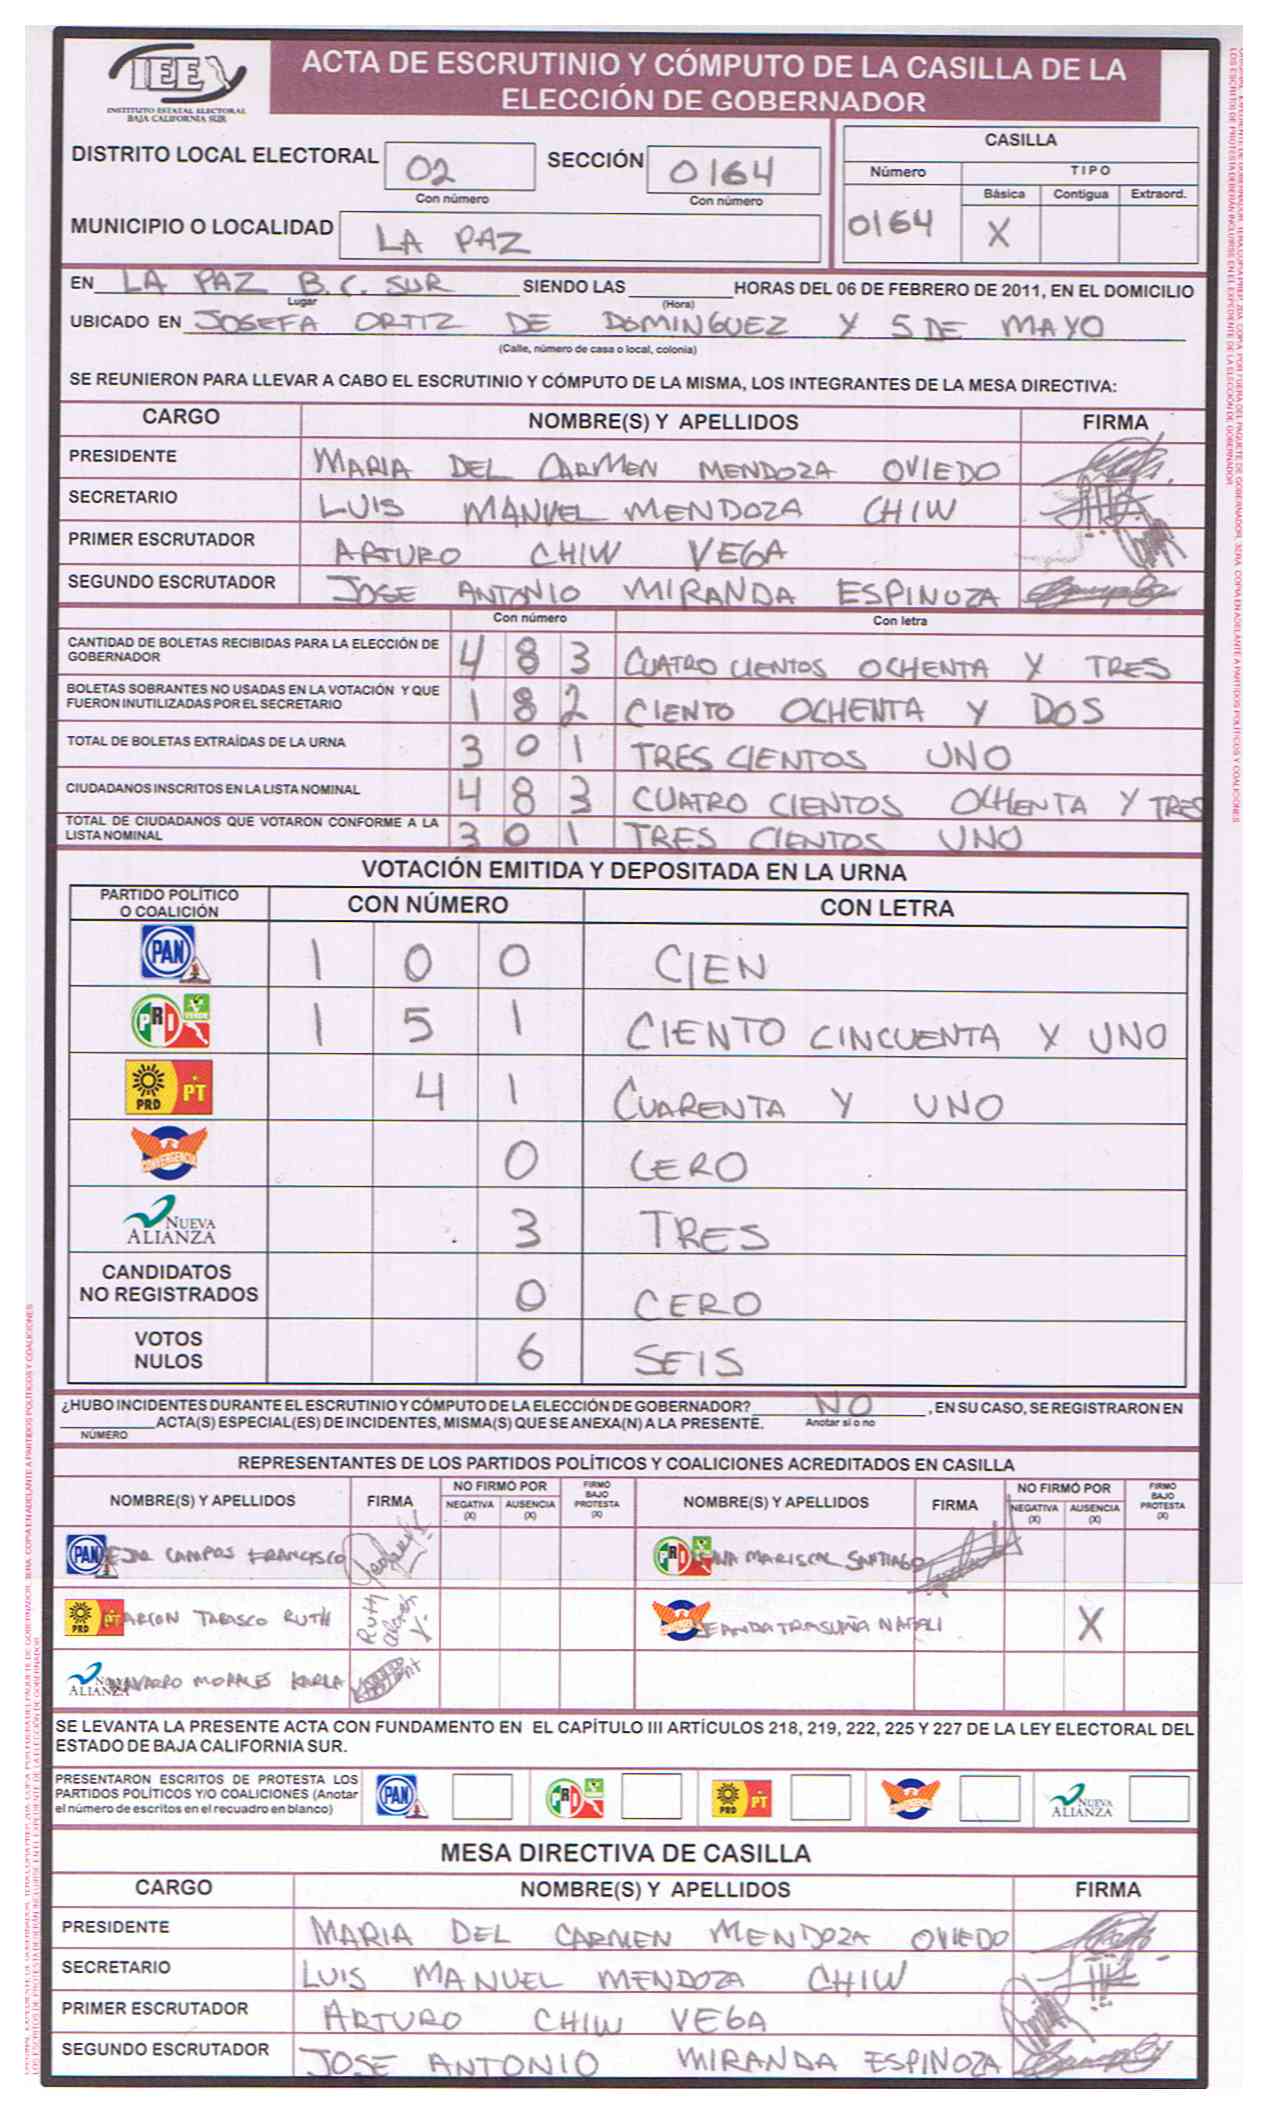 IEE
INSTITUTO ESTATAL ELECTORAL
BAJA CALIFORNIA SUR
ACTA DE ESCRUTINIO Y CÓMPUTO DE LA CASILLA DE LA
ELECCIÓN DE GOBERNADOR
DISTRITO LOCAL ELECTORAL 02 SECCIÓN 0164
Con número Con número
MUNICIPIO O LOCALIDAD LA PAZ
CASILLA
Número TIPO
Básica Contigua Extraord.
0164 X
EN LA PAZ B.C. SUR SIENDO LAS HORAS DEL 06 DE FEBRERO DE 2011, EN EL DOMICILIO
Lugar (Hora)
UBICADO EN JOSEFA ORTIZ DE DOMINGUEZ Y 5 DE MAYO
(Calle, número de casa o local, colonia)
SE REUNIERON PARA LLEVAR A CABO EL ESCRUTINIO Y CÓMPUTO DE LA MISMA, LOS INTEGRANTES DE LA MESA DIRECTIVA:
CARGO NOMBRE(S) Y APELLIDOS FIRMA
PRESIDENTE MARIA DEL CARMEN MENDOZA OVIEDO
SECRETARIO LUIS MANUEL MENDOZA CHIW
PRIMER ESCRUTADOR ARTURO CHIW VEGA
SEGUNDO ESCRUTADOR JOSE ANTONIO MIRANDA ESPINOZA
Con número Con letra
CANTIDAD DE BOLETAS RECIBIDAS PARA LA ELECCIÓN DE
GOBERNADOR 4 8 3 CUATRO CIENTOS OCHENTA Y TRES
BOLETAS SOBRANTES NO USADAS EN LA VOTACIÓN Y QUE
FUERON INUTILIZADAS POR EL SECRETARIO 1 8 2 CIENTO OCHENTA Y DOS
TOTAL DE BOLETAS EXTRAÍDAS DE LA URNA 3 0 1 TRES CIENTOS UNO
CIUDADANOS INSCRITOS EN LA LISTA NOMINAL 4 8 3 CUATRO CIENTOS OCHENTA Y TRES
TOTAL DE CIUDADANOS QUE VOTARON CONFORME A LA
LISTA NOMINAL 3 0 1 TRES CIENTOS UNO
VOTACIÓN EMITIDA Y DEPOSITADA EN LA URNA
PARTIDO POLÍTICO
O COALICIÓN CON NÚMERO CON LETRA
PAN 1 0 0 CIEN
PRI VERDE 1 5 1 CIENTO CINCUENTA Y UNO
PRD PT 4 1 CUARENTA Y UNO
CONVERGENCIA 0 CERO
NUEVA
ALIANZA 3 TRES
CANDIDATOS
NO REGISTRADOS 0 CERO
VOTOS
NULOS 6 SEIS
¿HUBO INCIDENTES DURANTE EL ESCRUTINIO Y CÓMPUTO DE LA ELECCIÓN DE GOBERNADOR? NO , EN SU CASO, SE REGISTRARON EN
ACTA(S) ESPECIAL(ES) DE INCIDENTES, MISMA(S) QUE SE ANEXA(N) A LA PRESENTE. Anotar si o no
NÚMERO
REPRESENTANTES DE LOS PARTIDOS POLÍTICOS Y COALICIONES ACREDITADOS EN CASILLA
NOMBRE(S) Y APELLIDOS FIRMA NO FIRMÓ POR NEGATIVA (X) AUSENCIA (X) FIRMÓ BAJO PROTESTA (X) NOMBRE(S) Y APELLIDOS FIRMA NO FIRMÓ POR NEGATIVA (X) AUSENCIA (X) FIRMÓ BAJO PROTESTA (X)
PAN CAMPOS FRANCISCO PRI MARISCAL SANTIAGO
PRD PT TABASCO RUTH X
NUEVA
ALIANZA NAVARRO MORALES KARLA
SE LEVANTA LA PRESENTE ACTA CON FUNDAMENTO EN EL CAPÍTULO III ARTÍCULOS 218, 219, 222, 225 Y 227 DE LA LEY ELECTORAL DEL
ESTADO DE BAJA CALIFORNIA SUR.
PRESENTARON ESCRITOS DE PROTESTA LOS
PARTIDOS POLÍTICOS Y/O COALICIONES (Anotar
el número de escritos en el recuadro en blanco)
PAN PRI PRD PT NUEVA ALIANZA
MESA DIRECTIVA DE CASILLA
CARGO NOMBRE(S) Y APELLIDOS FIRMA
PRESIDENTE MARIA DEL CARMEN MENDOZA OVIEDO
SECRETARIO LUIS MANUEL MENDOZA CHIW
PRIMER ESCRUTADOR ARTURO CHIW VEGA
SEGUNDO ESCRUTADOR JOSE ANTONIO MIRANDA ESPINOZA